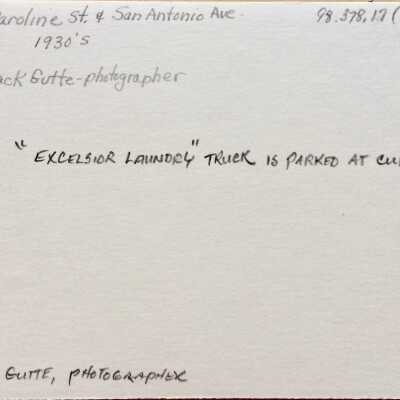 aroline St. & San Antonio Ave. 98.378.17 (
1930's
ack Gutte-photographer
"EXCELSIOR LAUNDRY" TRUCK IS PARKED AT CU
GUTTE, PHOTOGRAPHER